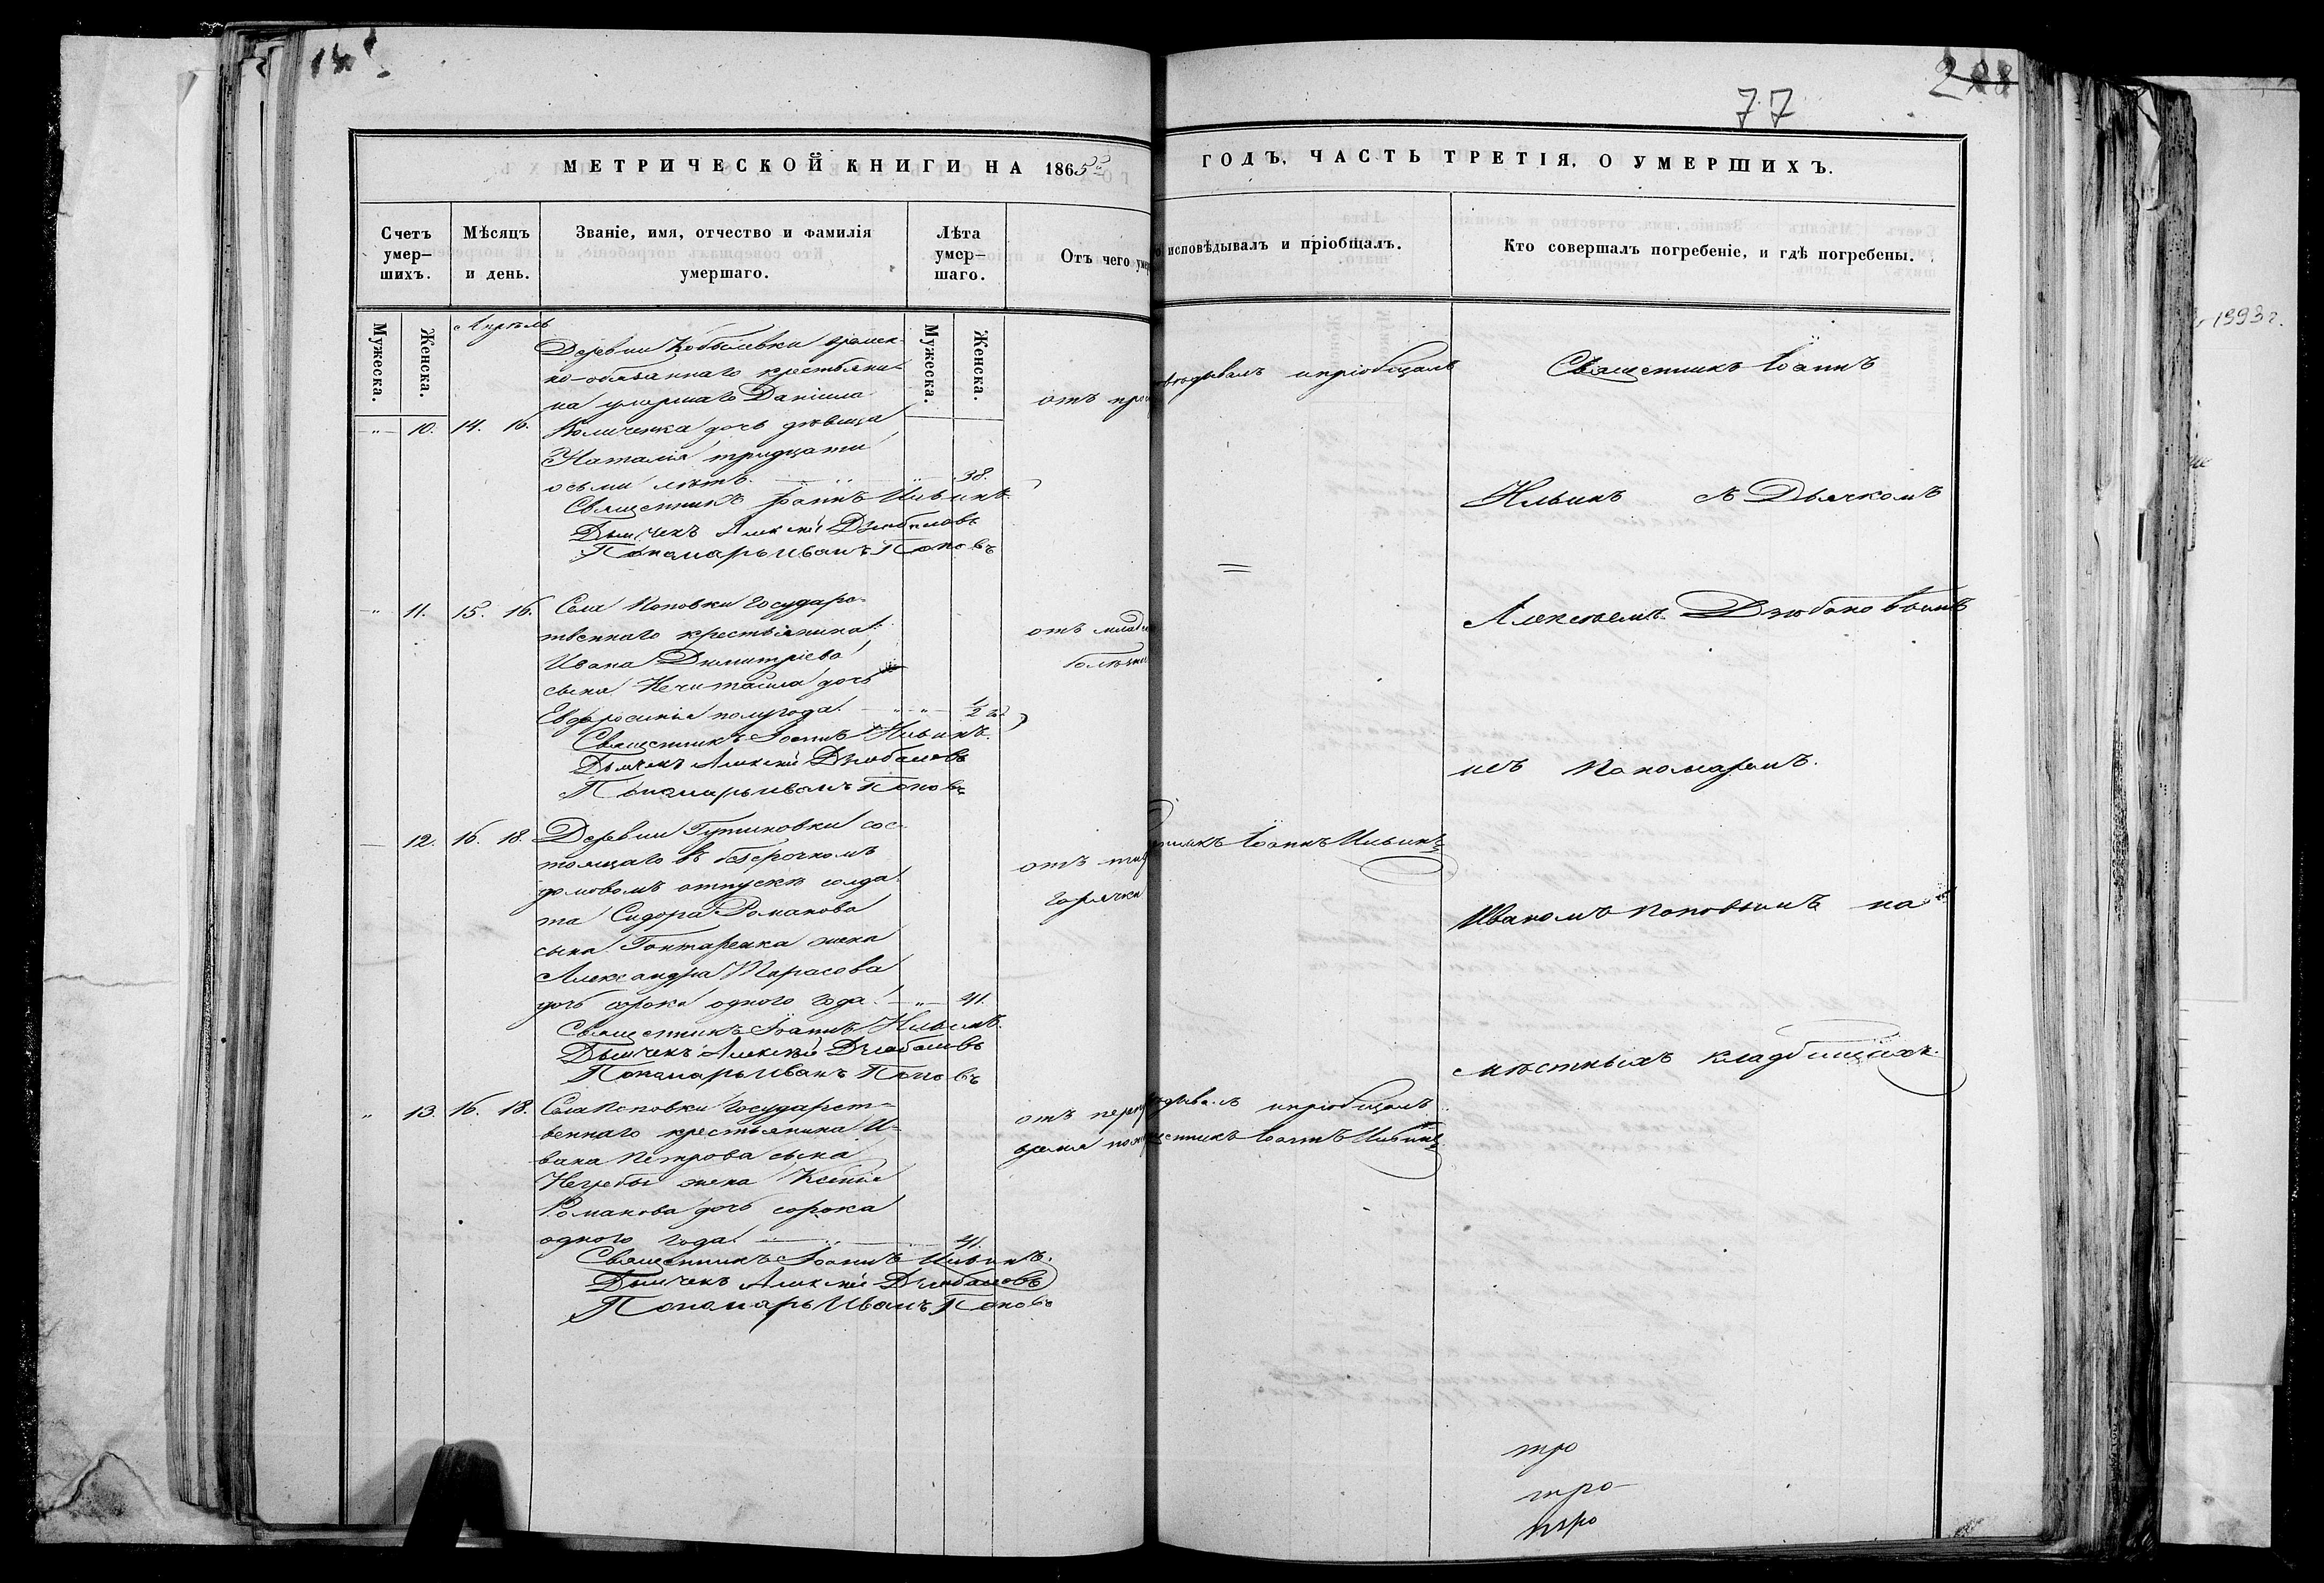 77
МЕТРИЧЕСКОЙ КНИГИ НА 1865
ГОДЪ, ЧАСТЬ ТРЕТІЯ, О УМЕРШИХЪ.
Счетъ умер-
шихъ.
Мѣсяцъ
и день.
Званіе, имя, отчество и фамилія
умершаго.
Лѣта
умер-
шаго.
Отъ чего
исповѣдывалъ и пріобщалъ.
Кто совершалъ погребеніе, и гдѣ погребены.
Мужеска.
Женска.
Мужеска.
Женска.
Апрѣль
Деревни Кобылевки времен-
но-обязаннаго крестьяни-
на умершаго Даніила
10. 14. 16. дочь дѣвица
Наталія тридцати
осьми лѣтъ. 38.
Священникъ Іоаннъ Ильинъ
Дьячекъ Алексѣй Дзюбановъ
Пономарь Иванъ Поповъ
отъ
пріобщалъ
11. 15. 16. Села Поповки Государс-
твеннаго крестьянина
Ивана Димитріева
сына Нечитайла дочь
Евфросинія полугода. 1/2
Священникъ Іоаннъ Ильинъ
Дьячекъ Алексѣй Дзюбановъ
Пономарь Иванъ Поповъ
отъ
12. 16. 18. Деревни Гутиковки сос-
тоящаго въ безсрочномъ
домовомъ отпускѣ солда-
та Сидора Романова
сына Гонтаренка жена
Александра Тарасова
дочь сорока одного года. 41.
Священникъ Іоаннъ Ильинъ
Дьячекъ Алексѣй Дзюбановъ
Пономарь Иванъ Поповъ
отъ
горячки
Іоаннъ Ильинъ
13. 16. 18. Села Поповки Государст-
веннаго крестьянина И-
вана Петрова сына
Негребы жена Ксенія
Романова дочь сорока
одного года. 41.
Священникъ Іоаннъ Ильинъ
Дьячекъ Алексѣй Дзюбановъ
Пономарь Иванъ Поповъ
отъ
время
пріобщалъ
Іоаннъ Ильинъ
Священникъ Іоаннъ
Ильинъ съ Дьячкомъ
Алексѣемъ Дзюбановымъ
исъ Пономаремъ
Иваномъ Поповымъ на
мѣстныхъ кладбищахъ.
тро
тро
тро